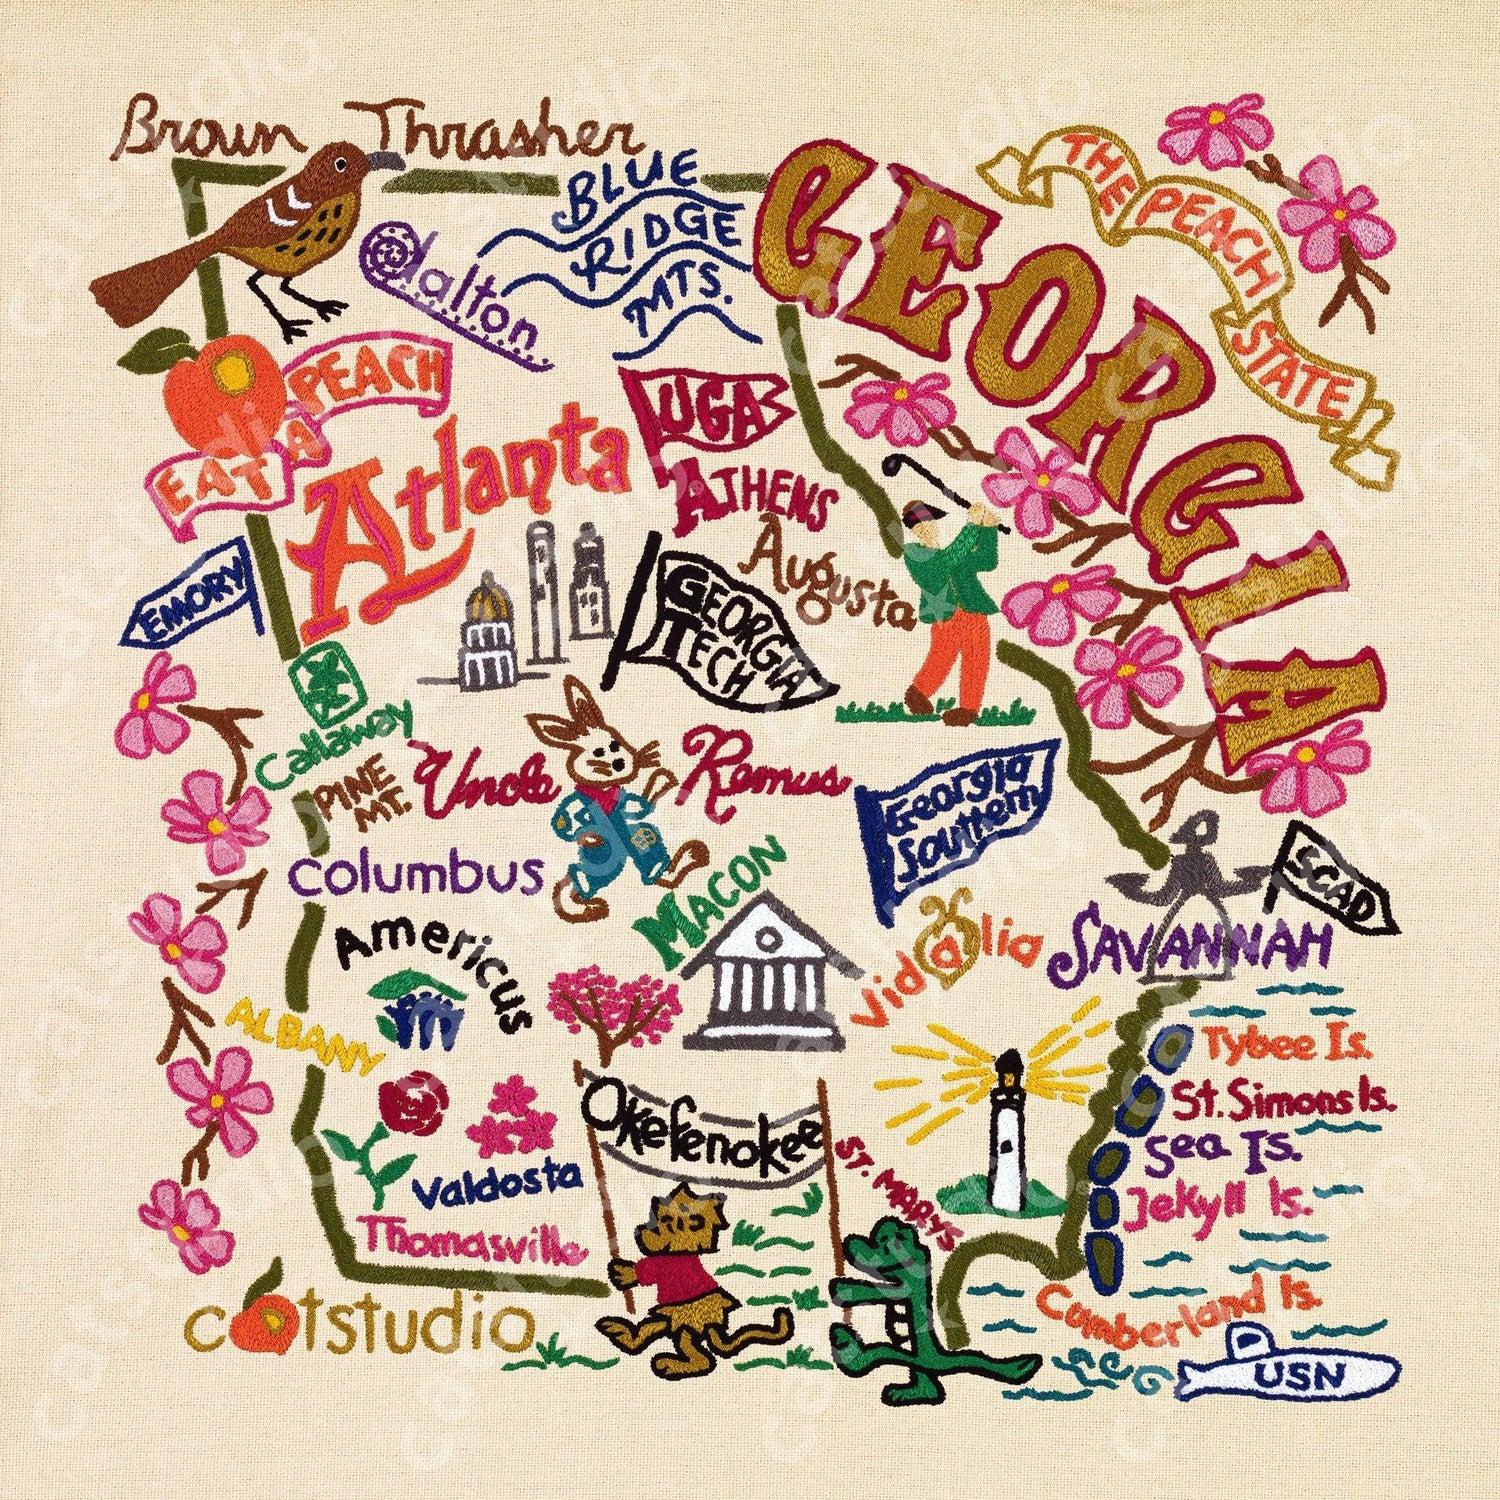 Brown Thrasher
BLUE
RIDGE
MTS.
dalton
GEORGIA
THE PEACH STATE
EAT A PEACH
Atlanta
UGA
ATHENS
Augusta
EMORY
GEORGIA
TECH
Callaway
PINE
MT.
Uncle Remus
Georgia
Southern
columbus
MACON
SCAD
Americus
Vidalia
SAVANNAH
ALBANY
Tybee Is.
St. Simons Is.
Sea Is.
Jekyll Is.
Okefenokee
ST. MARYS
Valdosta
Thomasville
Cumberland Is.
catstudio
USN